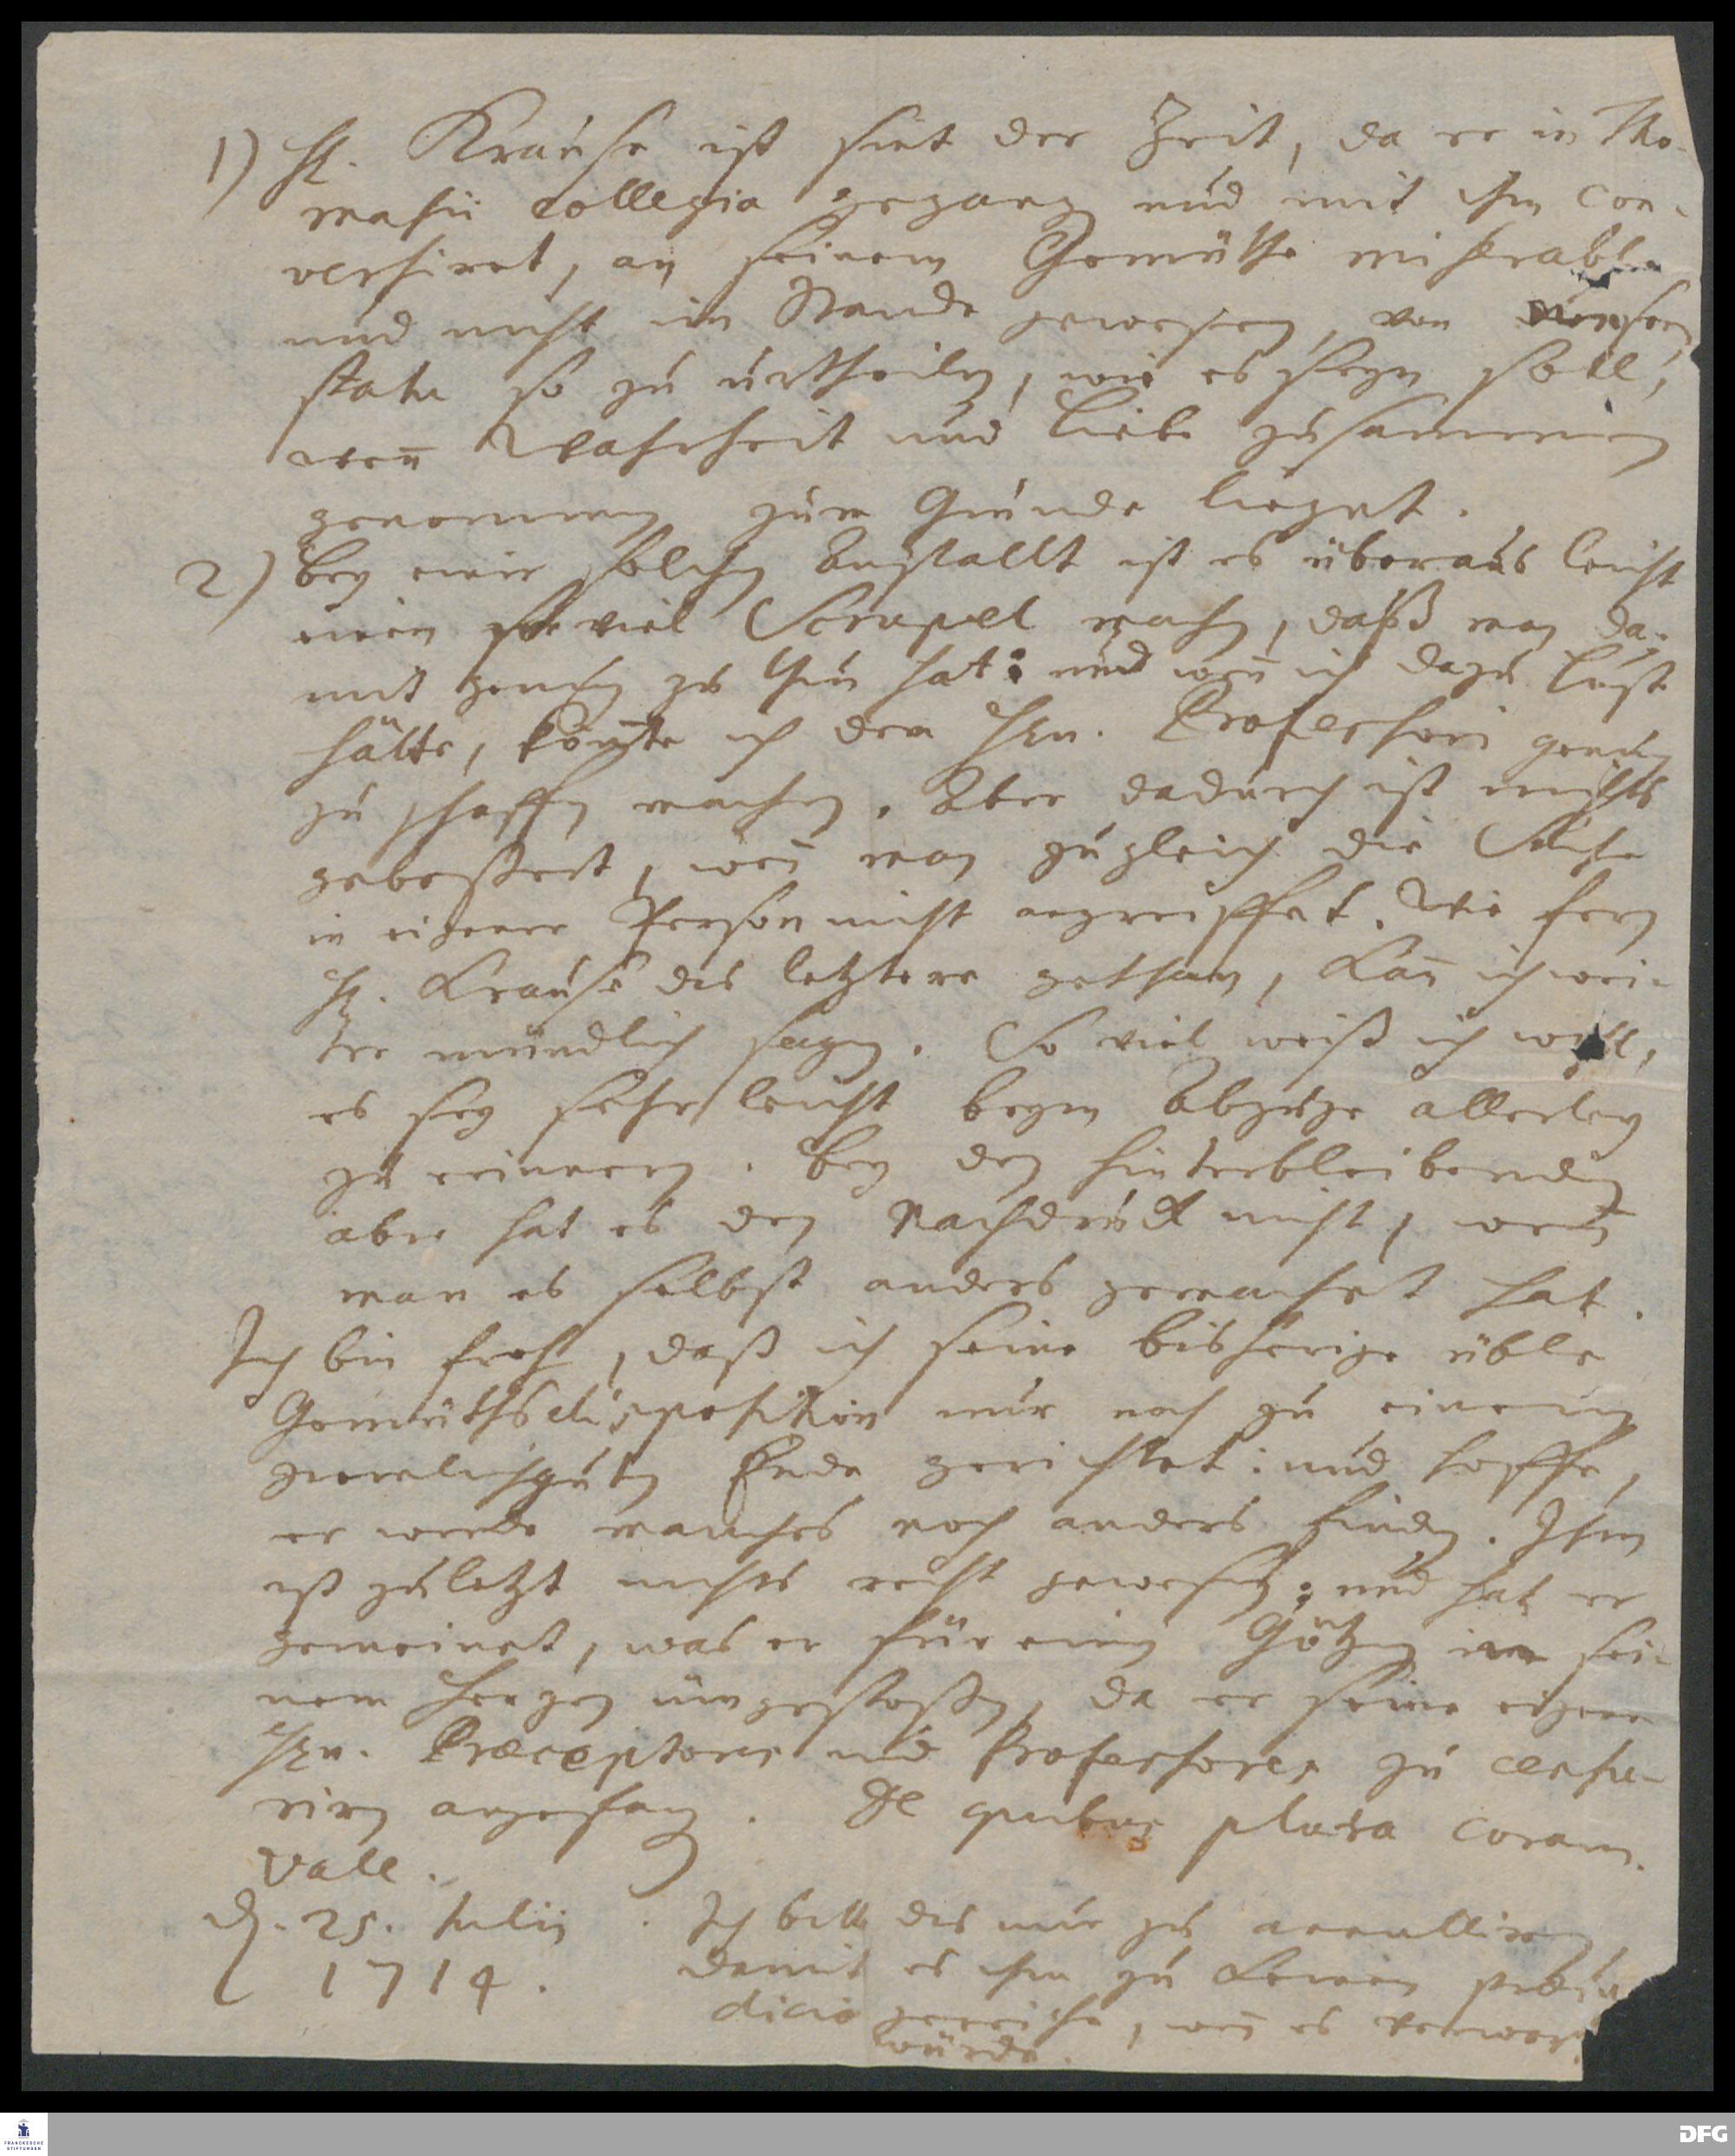 1) H. Krause ist seit der Zeit, da er in Tho-
masii collegia gegangen und mit ihm con-
versiret, an seinem Gemüthe miserabl
und nicht im Stande gewesen, von unserm
statu so zu urtheilen, wie es seyn soll,
wenn Wahrheit und Liebe zusammen
genommen zum Grunde lieget.
2) Bey einer solchen Anstallt ist es überaus leicht
einen so viel Scrupel machen, daß man da-
mit genug zu thun hat: und wenn ich dazu Lust
hätte, könte ich dem Hrn. Professori genug
zu schaffen machen. Aber dadurch ist nichts
gebeßert, wenn man zugleich die Sache
in eigener Person nicht angreiffet. Wie fern
H. Krause das letztere gethan, kan ich wei-
ter mündlich sagen. So viel weiß ich wohl,
es sey sehr leicht beym Abzuge allerley
zu erinnern. Bey den hinterbleibenden
aber hat es den Nachdruck nicht, wenn
man es selbst anders gemachet hat.
Ich bin froh, daß ich seine bisherige üble
Gemüthsdisposition nur noch zu einem
ziemlich guten Ende gerichtet: und hoffe,
er werde manches noch anders finden. Ihm
ist zuletzt nichts recht gewesen; und hat er
gemeinet, was er für einen Götzen in sei-
nem Herzen umgestoßen, da er seine eigene
Hrn. Præceptores und Professores zu censu-
riren angefangen. De quibus plura coram.
Vale.
d. 25. Julii
1714.
Ich bitte dis nur zu
damit es ihm zu keinem præju-
dicio gereiche, wenn es verwar
würde.
FRANCKESCHE
STIFTUNGEN
DFG